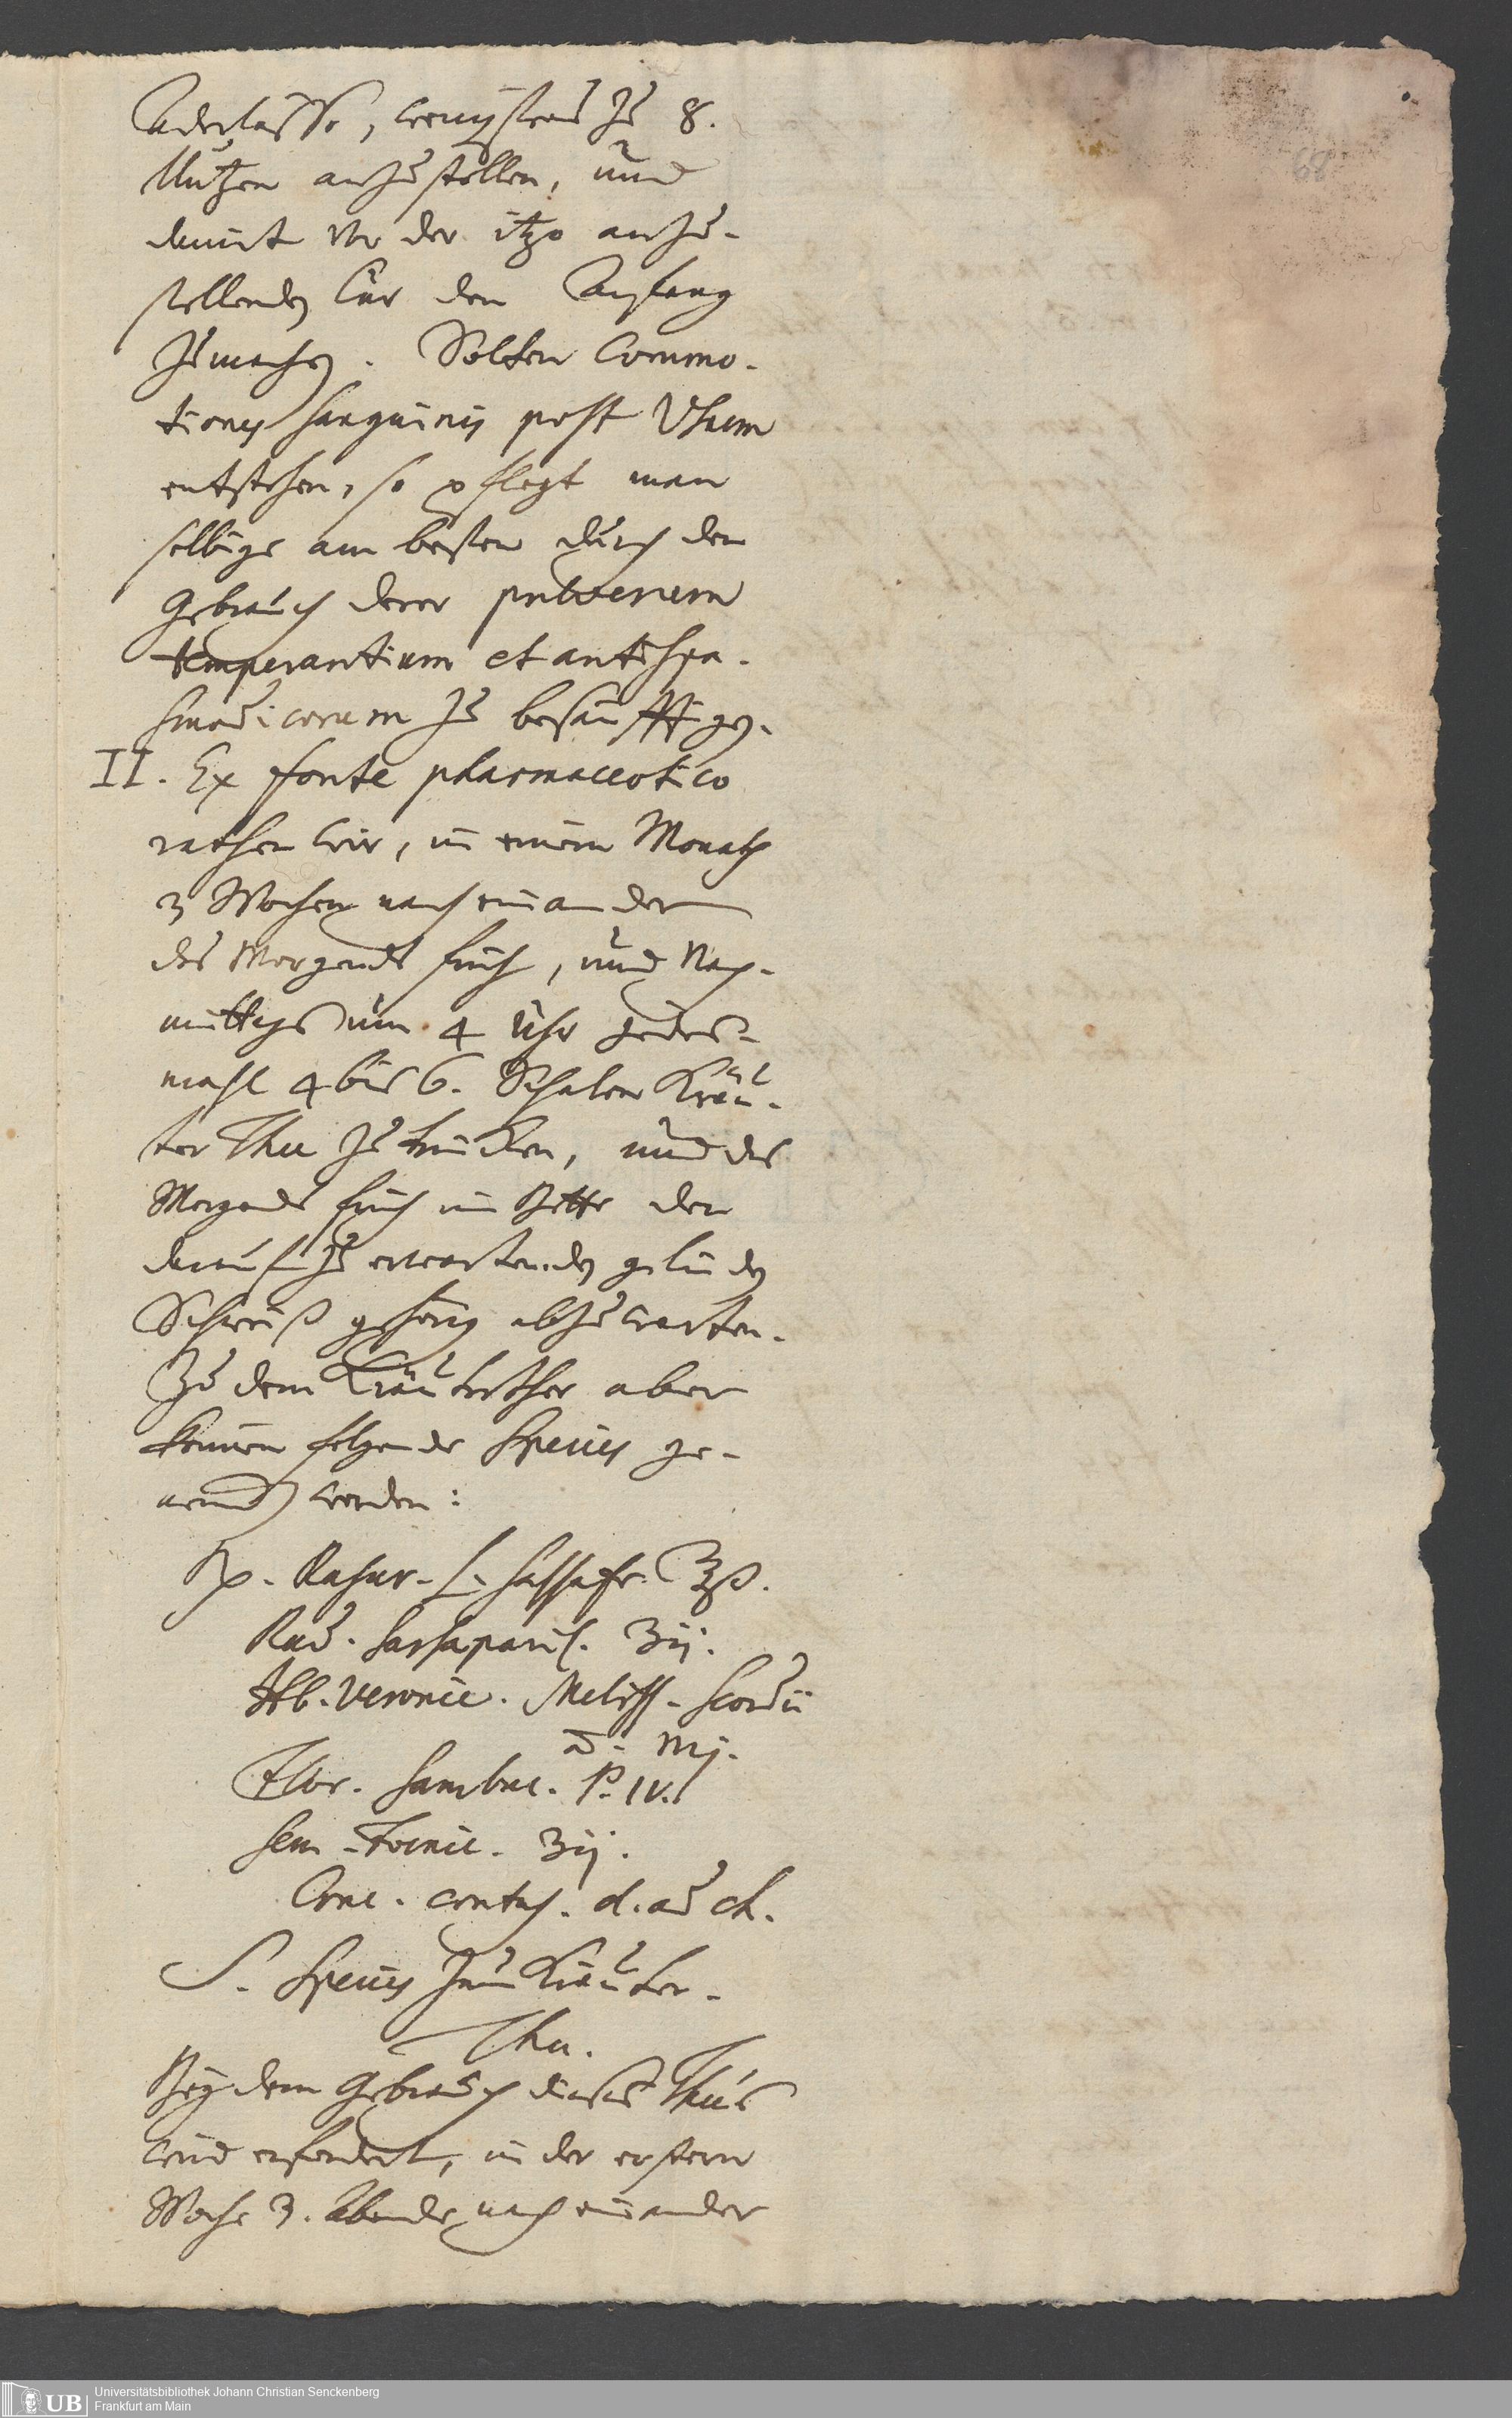 Aderlässe, wenigstens zu 8.
Unzen anzustellen, und
damit vor der itzo anzu-
stellenden Cur den Anfang
zumachen. Solten Commo-
tiones sanguinis post Usum
entstehen, so pflegt man
selbige am besten durch den
Gebrauch derer pulverum
temperantium et antispa-
smodicorum zu besänfftigen.
II. Ex fonte pharmaceutico
rathen wir, in einem Monath
3 Wochen nach einander
des Morgends früh, und Nach-
mittags um 4 Uhr jedes-
mahl 4 bis 6. Schalen Kräu-
ter Thee zu trincken, und des
Morgends früh im Bette den
darauf zu erwartenden gelinden
Schweiß gehörig abzuwarten.
Zu dem Kräuterthee aber
können folgende Species ge-
nommen werden:
Rp. Rasur. L. Sassafr. ℥ß.
Rad. Sarsaparil. ʒij.
Hb. Veronic. Meliss. Scordii
a͞a. Mj.
Flor. Sambuc. P. IV.
Sem. Foenic. ʒij.
Conc. contus. d. ad ch.
S. Species zum Kräuter-
Thee.
Bey dem Gebrauch dieses Thee's
wird erfordert, in der erstern
Woche 3. Abende nach einander
68
UB
Universitätsbibliothek Johann Christian Senckenberg
Frankfurt am Main